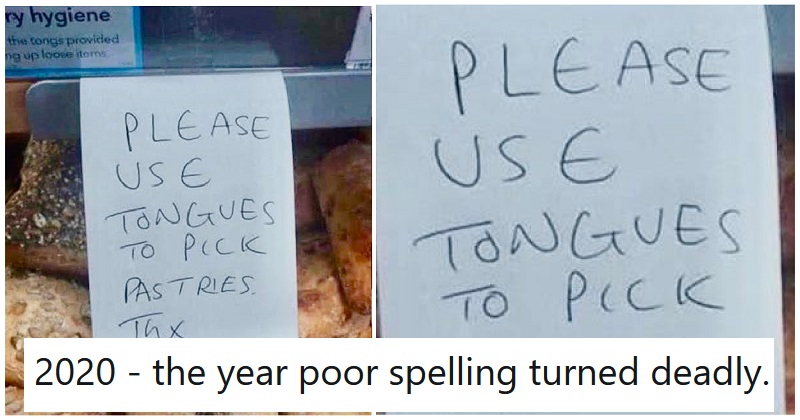 ry hygiene
the tongs provided
ng up loose items.
PLEASE
USE
TONGUES
TO PICK
PASTRIES.
Thx
PLEASE
USE
TONGUES
TO PICK
2020 - the year poor spelling turned deadly.